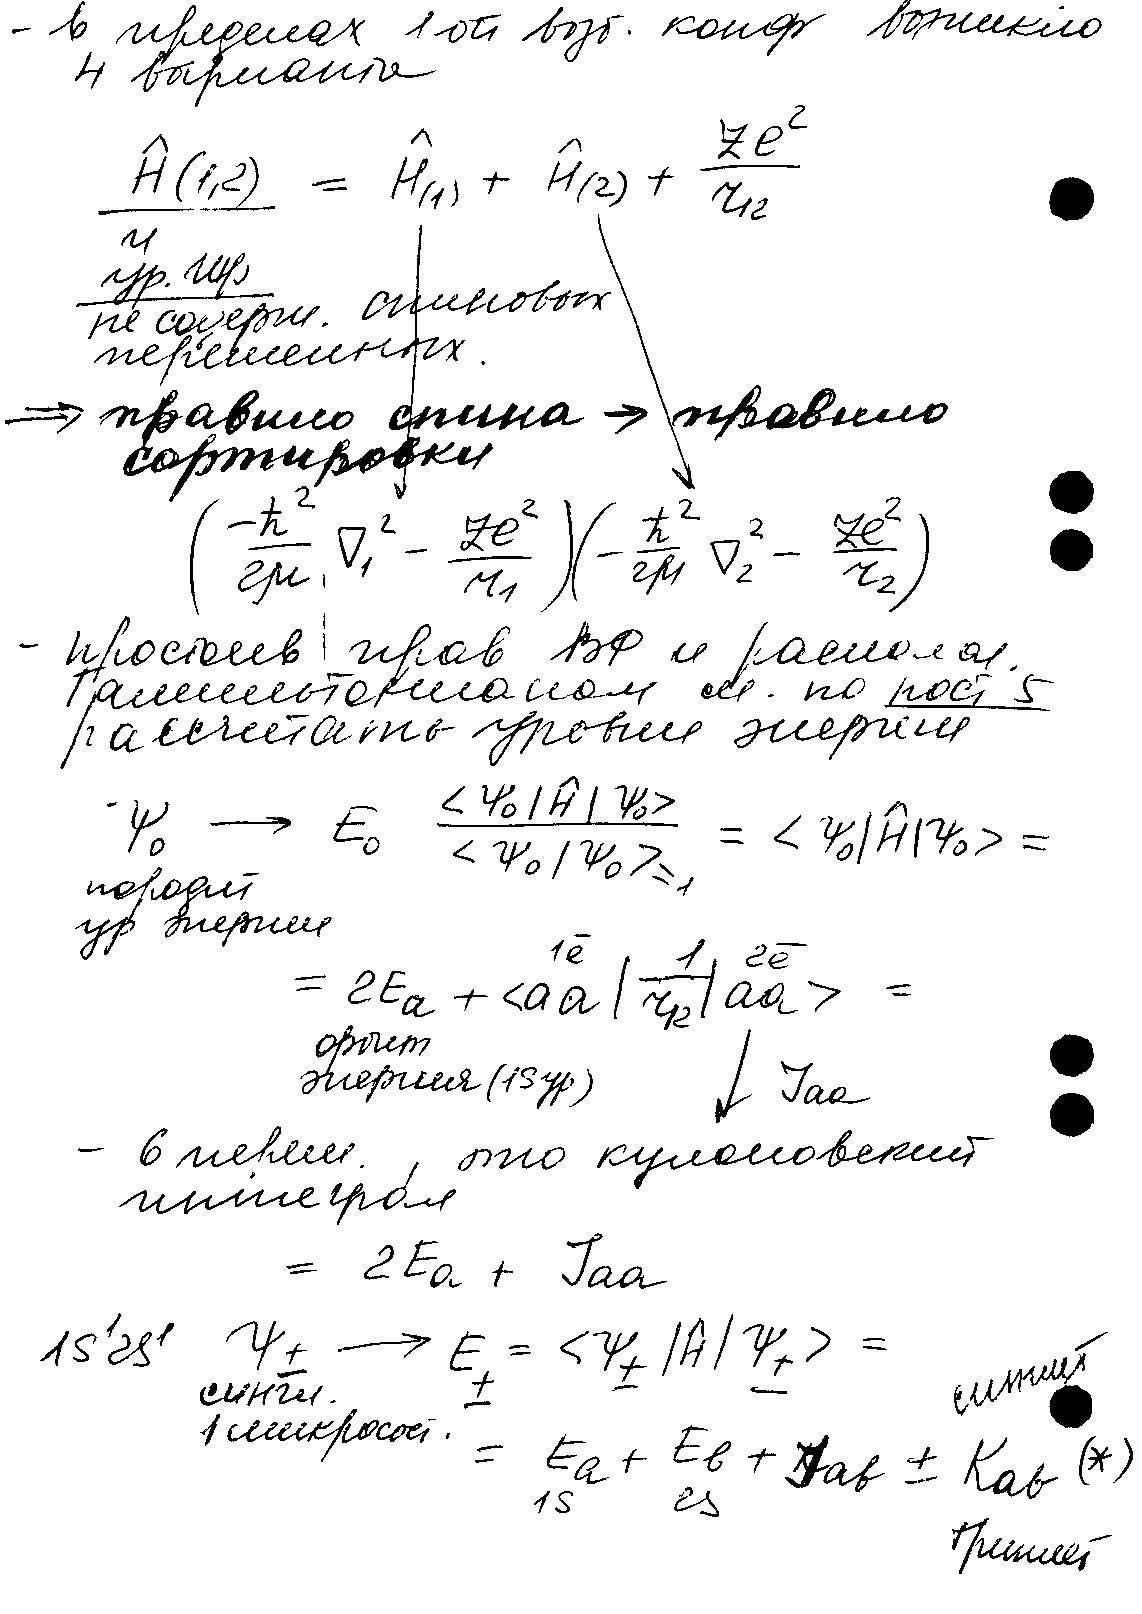 - в пределах 1ой возб. конф возникло
4 варианта
Ĥ(1,2) = Ĥ(1) + Ĥ(2) + Ze²/r₁₂
и
ур. Шр
не содерж. спиновых
переменных.
⇒ правило спина → правило
сортировки
(-ħ²/2μ ∇₁² - Ze²/r₁)(-ħ²/2μ ∇₂² - Ze²/r₂)
- простоив прав ВФ и располог.
Гамильтонианом м. по пост 5
рассчитать уровни энергии
Ψ₀ → E₀ <Ψ₀|Ĥ|Ψ₀>/<Ψ₀|Ψ₀>=1 = <Ψ₀|Ĥ|Ψ₀> =
породит
ур энергии
1ē 2ē
= 2Ea + <aa|1/r₁₂|aa> =
орбит
энергия (1s ур)
Jaa
- 6 перем., это кулоновский
интеграл
= 2Ea + Jaa
1s¹2s¹ Ψ± → E± = <Ψ±|Ĥ|Ψ±> =
сингл.
1 микросост.
синглет
= Ea + Eb + Jab ± Kab (*)
1s 2s
триплет